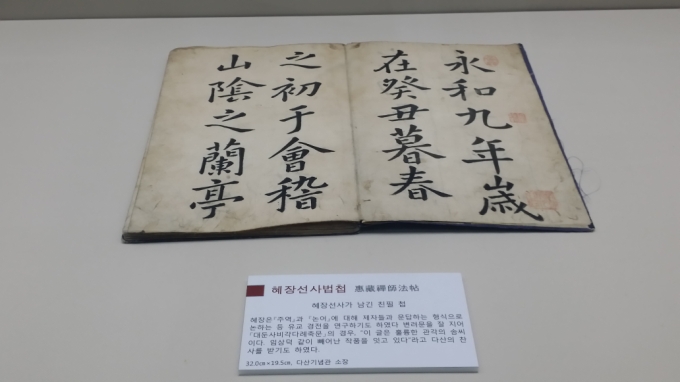 永和九年歲
在癸丑暮春
之初于會稽
山陰之蘭亭
혜장선사법첩 惠藏禪師法帖
혜장선사가 남긴 친필 첩
혜장은『주역』과『논어』에 대해 제자들과 문답하는 형식으로
논하는 등 유교 경전을 연구하기도 하였다. 변려문을 잘 지어
「대둔사비각다례축문」의 경우, "이 글은 훌륭한 관각의 솜씨
이다. 임상덕 같이 빼어난 작품을 잇고 있다"라고 다산의 찬
사를 받기도 하였다.
32.0㎝×19.5㎝, 다산기념관 소장